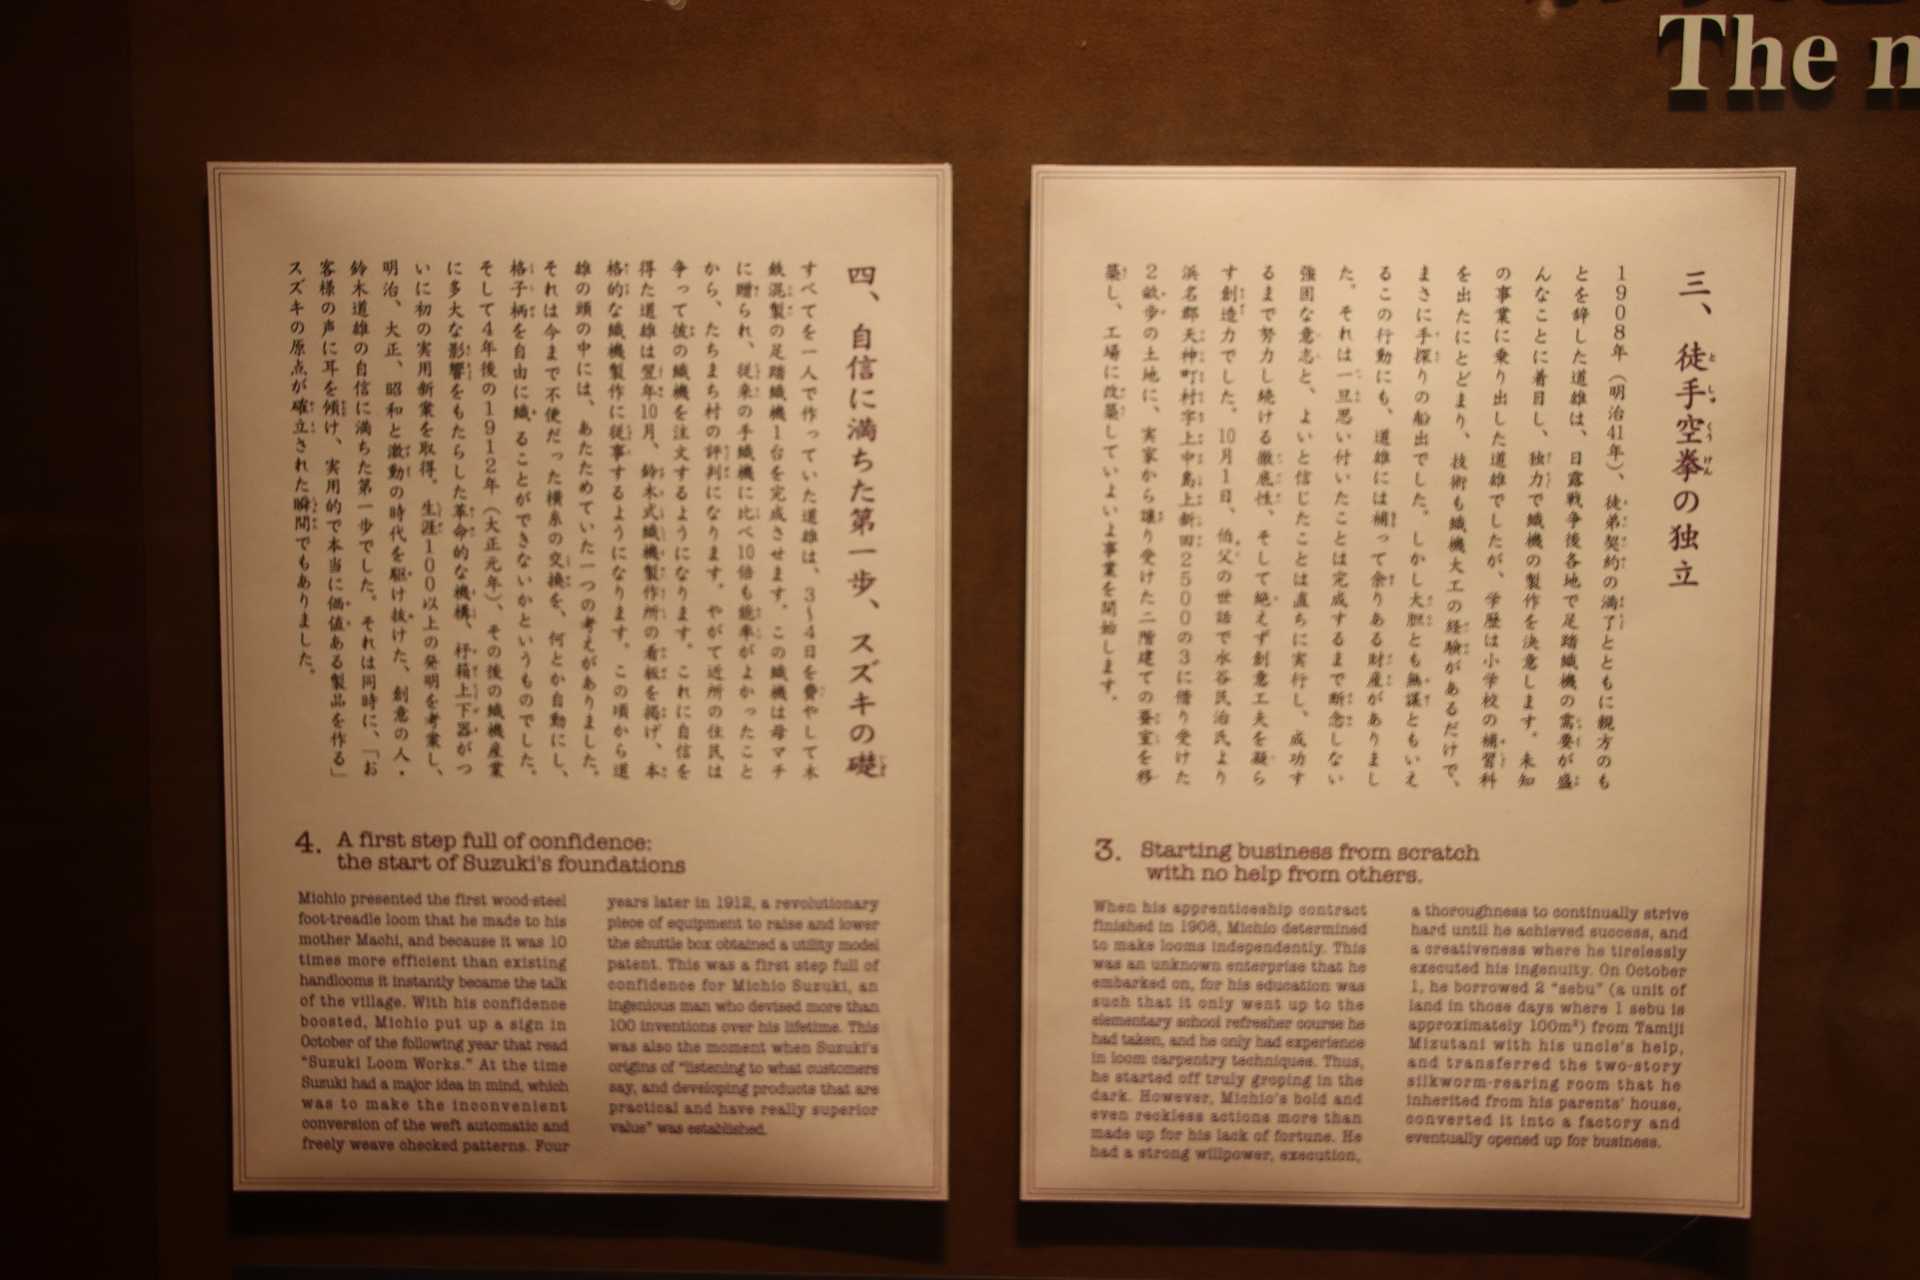 The
三、徒手空拳の独立
1908年（明治41年）、徒弟契約の満了とともに親方のも
とを辞した道雄は、日露戦争後各地で足踏織機の需要が盛
んなことに着目し、独力で織機の製作を決意します。未知
の事業に乗り出した道雄でしたが、学歴は小学校の補習科
を出たにとどまり、技術も織機大工の経験があるだけで、
まさに手探りの船出でした。しかし大胆とも無謀ともいえ
るこの行動にも、道雄には補って余りある財産がありまし
た。それは一旦思い付いたことは完成するまで断念しない
強固な意志と、よいと信じたことは直ちに実行し、成功す
るまで努力し続ける徹底性、そして絶えず創意工夫を凝ら
す創造力でした。10月1日、伯父の世話で水谷民治氏より
浜名郡天神町村字上中島上新田2500の3に借り受けた
2畝歩の土地に、実家から譲り受けた二階建ての蚕室を移
築し、工場に改築していよいよ事業を開始します。
3. Starting business from scratch
with no help from others.
When his apprenticeship contract
finished in 1908, Michio determined
to make looms independently. This
was an unknown enterprise that he
embarked on, for his education was
such that it only went up to the
elementary school refresher course he
had taken, and he only had experience
in loom carpentry techniques. Thus,
he started off truly groping in the
dark. However, Michio's bold and
even reckless actions more than
made up for his lack of fortune. He
had a strong willpower, execution,
a thoroughness to continually strive
hard until he achieved success, and
a creativeness where he tirelessly
executed his ingenuity. On October
1, he borrowed 2 "sebu" (a unit of
land in those days where 1 sebu is
approximately 100m²) from Tamiji
Mizutani with his uncle's help,
and transferred the two-story
silkworm-rearing room that he
inherited from his parents' house,
converted it into a factory and
eventually opened up for business.
四、自信に満ちた第一歩、スズキの礎
すべてを一人で作っていた道雄は、3～4日を費やして木
鉄混製の足踏織機1台を完成させます。この織機は母マチ
に贈られ、従来の手織機に比べ10倍も能率がよかったこと
から、たちまち村の評判になります。やがて近所の住民は
争って彼の織機を注文するようになります。これに自信を
得た道雄は翌年10月、鈴木式織機製作所の看板を掲げ、本
格的な織機製作に従事するようになります。この頃から道
雄の頭の中には、あたためていた一つの考えがありました。
それは今まで不便だった横糸の交換を、何とか自動にし、
格子柄を自由に織ることができないかというものでした。
そして4年後の1912年（大正元年）、その後の織機産業
に多大な影響をもたらした革命的な機構、杼箱上下器がつ
いに初の実用新案を取得。生涯100以上の発明を考案し、
明治、大正、昭和と激動の時代を駆け抜けた、創意の人・
鈴木道雄の自信に満ちた第一歩でした。それは同時に、「お
客様の声に耳を傾け、実用的で本当に価値ある製品を作る」
スズキの原点が確立された瞬間でもありました。
4. A first step full of confidence:
the start of Suzuki's foundations
Michio presented the first wood-steel
foot-treadle loom that he made to his
mother Machi, and because it was 10
times more efficient than existing
handlooms it instantly became the talk
of the village. With his confidence
boosted, Michio put up a sign in
October of the following year that read
"Suzuki Loom Works." At the time
Suzuki had a major idea in mind, which
was to make the inconvenient
conversion of the weft automatic and
freely weave checked patterns. Four
years later in 1912, a revolutionary
piece of equipment to raise and lower
the shuttle box obtained a utility model
patent. This was a first step full of
confidence for Michio Suzuki, an
ingenious man who devised more than
100 inventions over his lifetime. This
was also the moment when Suzuki's
origins of "listening to what customers
say, and developing products that are
practical and have really superior
value" was established.